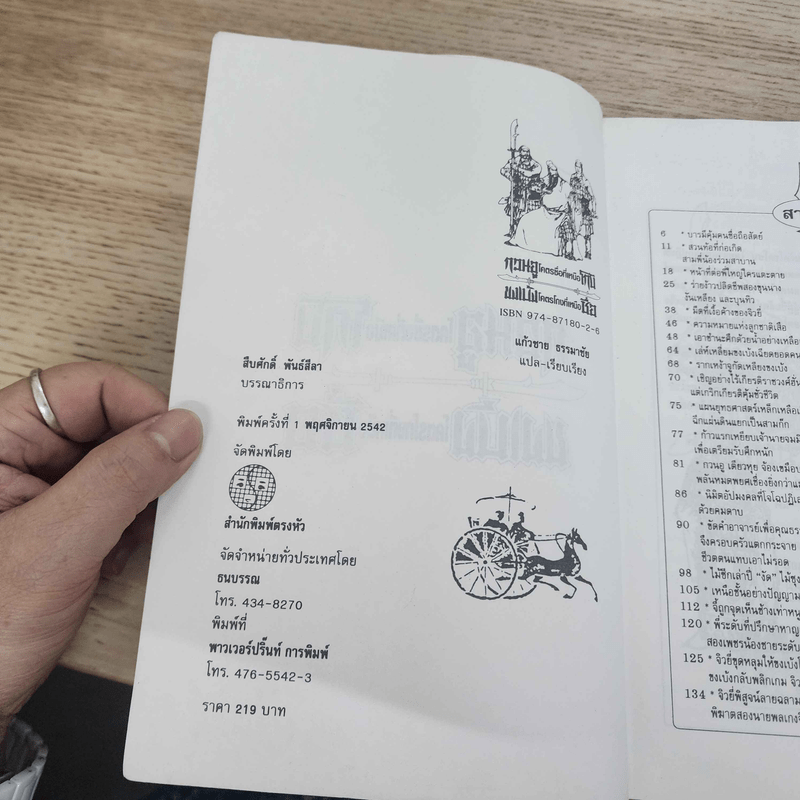 กวนอู โคตรซื่อที่เหนือ คน
ขงเบ้ง โคตรโกงที่เหนือ ซื่อ
ISBN 974-87180-2-6
แก้วชาย ธรรมาชัย
แปล-เรียบเรียง
สืบศักดิ์ พันธ์สีลา
บรรณาธิการ
พิมพ์ครั้งที่ 1 พฤศจิกายน 2542
จัดพิมพ์โดย
สำนักพิมพ์ตรงหัว
จัดจำหน่ายทั่วประเทศโดย
ธนบรรณ
โทร. 434-8270
พิมพ์ที่
พาวเวอร์ปริ๊นท์ การพิมพ์
โทร. 476-5542-3
ราคา 219 บาท
6 * บารมีคุ้มคนซื่อถือสัตย์
11 * สวนท้อที่ก่อเกิด
สามพี่น้องร่วมสาบาน
18 * หน้าที่ต่อพี่ใหญ่ใครแตะตาย
25 * ร่ายง้าวปลิดชีพสองขุนนาง
งันเหลียง และบุนทิว
38 * มีดที่เงื้อค้างของจิวยี่
46 * ความหมายแห่งลูกชาติเสือ
48 * เอาชำนะศึกด้วยน้ำอย่างเหลือ
64 * เล่ห์เหลี่ยมขงเบ้งเฉียดยอดคน
68 * รากเหง้าจูกัดเหลียงขงเบ้ง
70 * เชิญอย่างไร้เกียรติราชวงศ์ฮั่น
แต่เกริกเกียรติคุ้มชั่วชีวิต
75 * แผนยุทธศาสตร์เหล็กเหลือ
ฉีกแผ่นดินแยกเป็นสามก๊ก
77 * ก้าวแรกเหยียบเจ้านายจมมิ
เพื่อเตรียมรับศึกหนัก
81 * กวนอู เตียวหุย จ้องเขมือบ
พลันหมดพยศเชื่องยิ่งกว่าแม
86 * นิมิตอัปมงคลที่โจโฉปฏิเส
ด้วยคมดาบ
90 * ขัดคำอาจารย์เพื่อคุณธร
จึงครอบครัวแตกกระจาย
ชีวิตตนแทบเอาไม่รอด
98 * ไม้ซีกเล่าปี่ "จัด" ไม้ซุง
105 * เหนือชั้นอย่างปัญญาม
112 * จี้ถูกจุดเห็นช้างเท่าหน
120 * พี่ระดับที่ปรึกษาหาญ
สองเพชรน้องชายระดับ
125 * จิวยี่ขุดหลุมให้ขงเบ้งโ
ขงเบ้งกลับพลิกเกม จิว
134 * จิวยี่พิสูจน์ลายฉลาม
พิฆาตสองนายพลเกงจิ